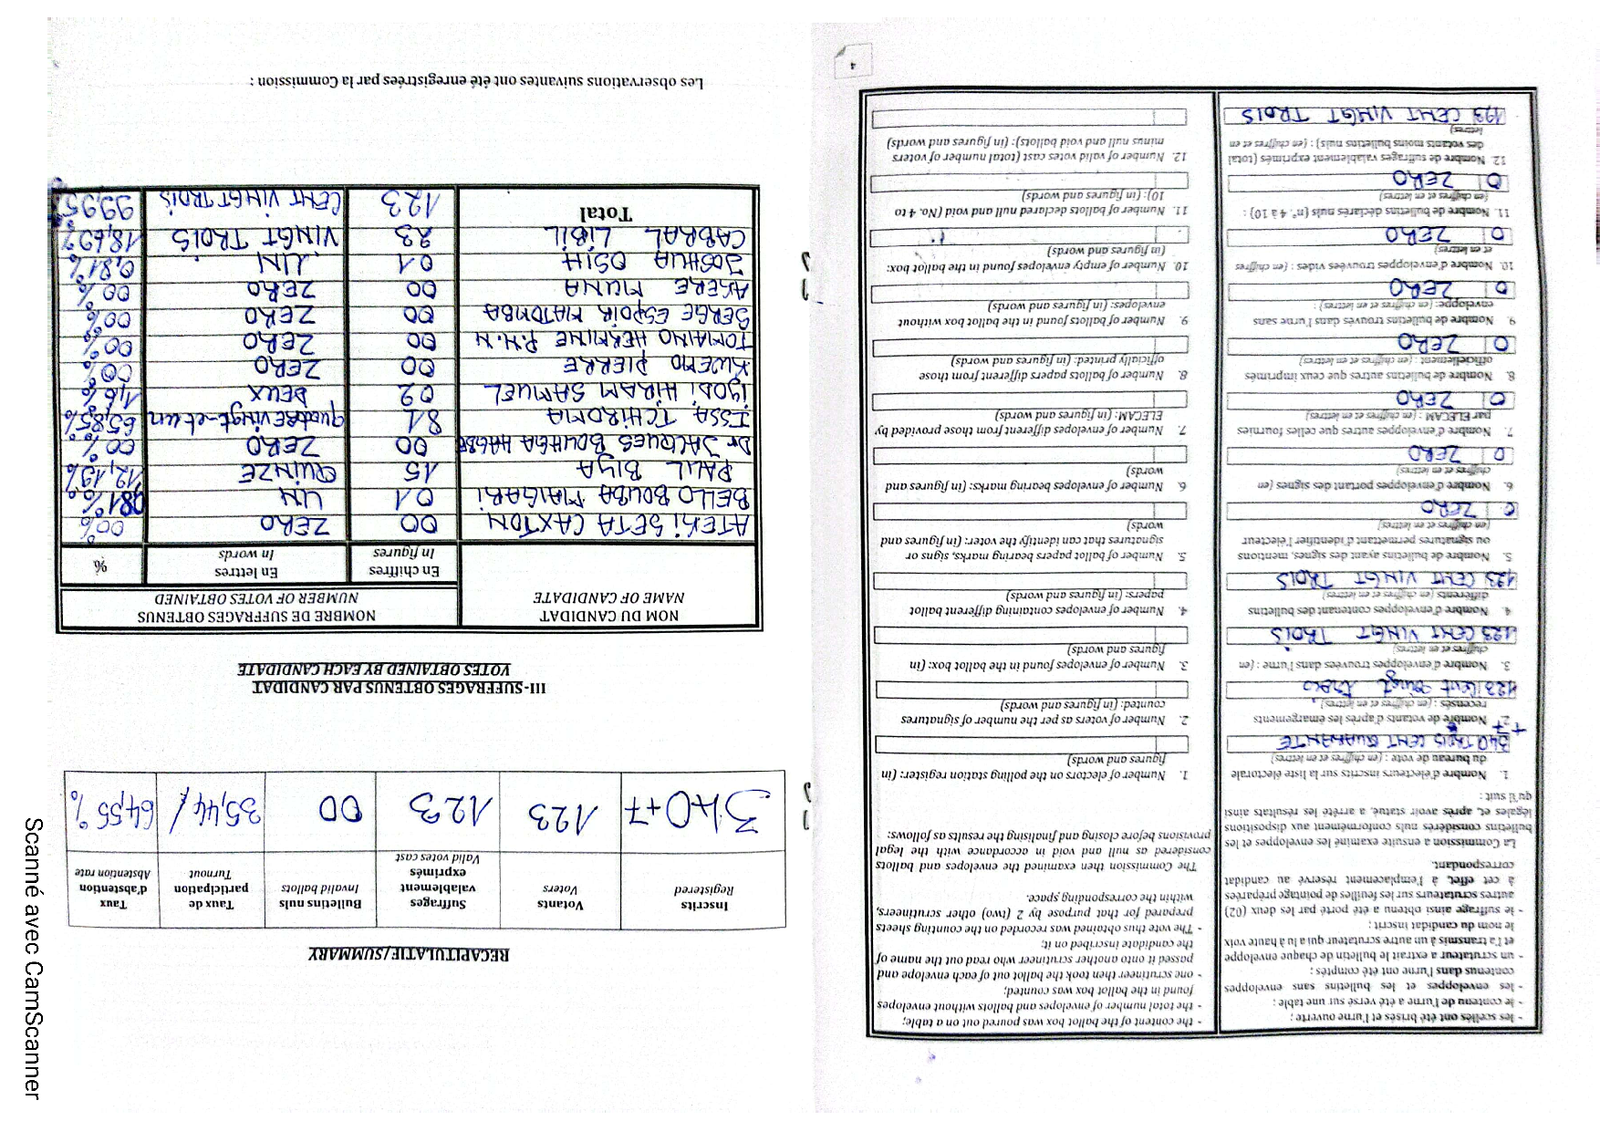 4
- les scellés ont été brisés et l'urne ouverte ;
- le contenu de l'urne a été versé sur une table ;
- les enveloppes et les bulletins sans enveloppes
contenus dans l'urne ont été comptés ;
- un scrutateur a extrait le bulletin de chaque enveloppe
et l'a transmis à un autre scrutateur qui a lu à haute voix
le nom du candidat inscrit ;
- le suffrage ainsi obtenu a été porté par les deux (02)
autres scrutateurs sur les feuilles de pointage préparées
à cet effet, à l'emplacement réservé au candidat
correspondant.
La Commission a ensuite examiné les enveloppes et les
bulletins considérés nuls conformément aux dispositions
légales et, après avoir statué, a arrêté les résultats ainsi
qu'il suit :
1. Nombre d'électeurs inscrits sur la liste électorale
du bureau de vote : (en chiffres et en lettres)
340 TROIS CENT QUARANTE
+7
2. Nombre de votants d'après les émargements
recensés : (en chiffres et en lettres)
123 Cent Vingt Trois
3. Nombre d'enveloppes trouvées dans l'urne : (en
chiffres et en lettres)
123 CENT VINGT TROIS
4. Nombre d'enveloppes contenant des bulletins
différents (en chiffres et en lettres)
123 CENT VINGT TROIS
5. Nombre de bulletins ayant des signes, mentions
ou signatures permettant d'identifier l'électeur
(en chiffres et en lettres)
0 ZERO
6. Nombre d'enveloppes portant des signes (en
chiffres et en lettres)
0 ZERO
7. Nombre d'enveloppes autres que celles fournies
par ELECAM : (en chiffres et en lettres)
0 ZERO
8. Nombre de bulletins autres que ceux imprimés
officiellement : (en chiffres et en lettres)
0 ZERO
9. Nombre de bulletins trouvés dans l'urne sans
enveloppe: (en chiffres et en lettres) :
0 ZERO
10. Nombre d'enveloppes trouvées vides : (en chiffres
et en lettres)
0 ZERO
11. Nombre de bulletins déclarés nuls (n° 4 à 10) :
(en chiffres et en lettres)
0 ZERO
12. Nombre de suffrages valablement exprimés (total
des votants moins bulletins nuls) : (en chiffres et en
lettres)
123 CENT VINGT TROIS
- the content of the ballot box was poured out on a table;
- the total number of envelopes and ballots without envelopes
found in the ballot box was counted;
- one scrutineer then took the ballot out of each envelope and
passed it onto another scrutineer who read out the name of
the candidate inscribed on it;
- The vote thus obtained was recorded on the counting sheets
prepared for that purpose by 2 (two) other scrutineers,
within the corresponding space.
The Commission then examined the envelopes and ballots
considered as null and void in accordance with the legal
provisions before closing and finalising the results as follows:
1. Number of electors on the polling station register: (in
figures and words)
2. Number of voters as per the number of signatures
counted: (in figures and words)
3. Number of envelopes found in the ballot box: (in
figures and words)
4. Number of envelopes containing different ballot
papers: (in figures and words)
5. Number of ballot papers bearing marks, signs or
signatures that can identify the voter: (in figures and
words)
6. Number of envelopes bearing marks: (in figures and
words)
7. Number of envelopes different from those provided by
ELECAM: (in figures and words)
8. Number of ballots papers different from those
officially printed: (in figures and words)
9. Number of ballots found in the ballot box without
envelopes: (in figures and words)
10. Number of empty envelopes found in the ballot box:
(in figures and words)
11. Number of ballots declared null and void (No. 4 to
10): (in figures and words)
12. Number of valid votes cast (total number of voters
minus null and void ballots): (in figures and words)
RECAPITULATIF/SUMMARY
Inscrits Registered | Votants Voters | Suffrages valablement exprimés Valid votes cast | Bulletins nuls Invalid ballots | Taux de participation Turnout | Taux d'abstention Abstention rate
340+7 | 123 | 123 | 00 | 35,44% | 64,55%
III-SUFFRAGES OBTENUS PAR CANDIDAT
VOTES OBTAINED BY EACH CANDIDATE
NOM DU CANDIDAT NAME OF CANDIDATE | NOMBRE DE SUFFRAGES OBTENUS NUMBER OF VOTES OBTAINED
En chiffres In figures | En lettres In words | %
ATEKI SETA CAXTON | 00 | ZERO | 00%
BELLO BOUBA MAIGARI | 01 | UN | 0,81%
PAUL BIYA | 15 | QUINZE | 12,19%
Dr JACQUES BOUHGA HAGBE | 00 | ZERO | 00%
ISSA TCHIROMA | 81 | quatre vingt-et-un | 65,85%
IYODI HIRAM SAMUEL | 02 | DEUX | 1,6%
KWEMO PIERRE | 00 | ZERO | 00%
TOMAINO HERMINE P.N.N | 00 | ZERO | 00%
SERGE ESPOIR MATOMBA | 00 | ZERO | 00%
AKERE MUNA | 00 | ZERO | 00%
JOSHUA OSIH | 01 | UN | 0,81%
CABRAL LIBIL | 23 | VINGT TROIS | 18,69%
Total | 123 | CENT VINGT TROIS | 99,95%
Les observations suivantes ont été enregistrées par la Commission :
Scanné avec CamScanner